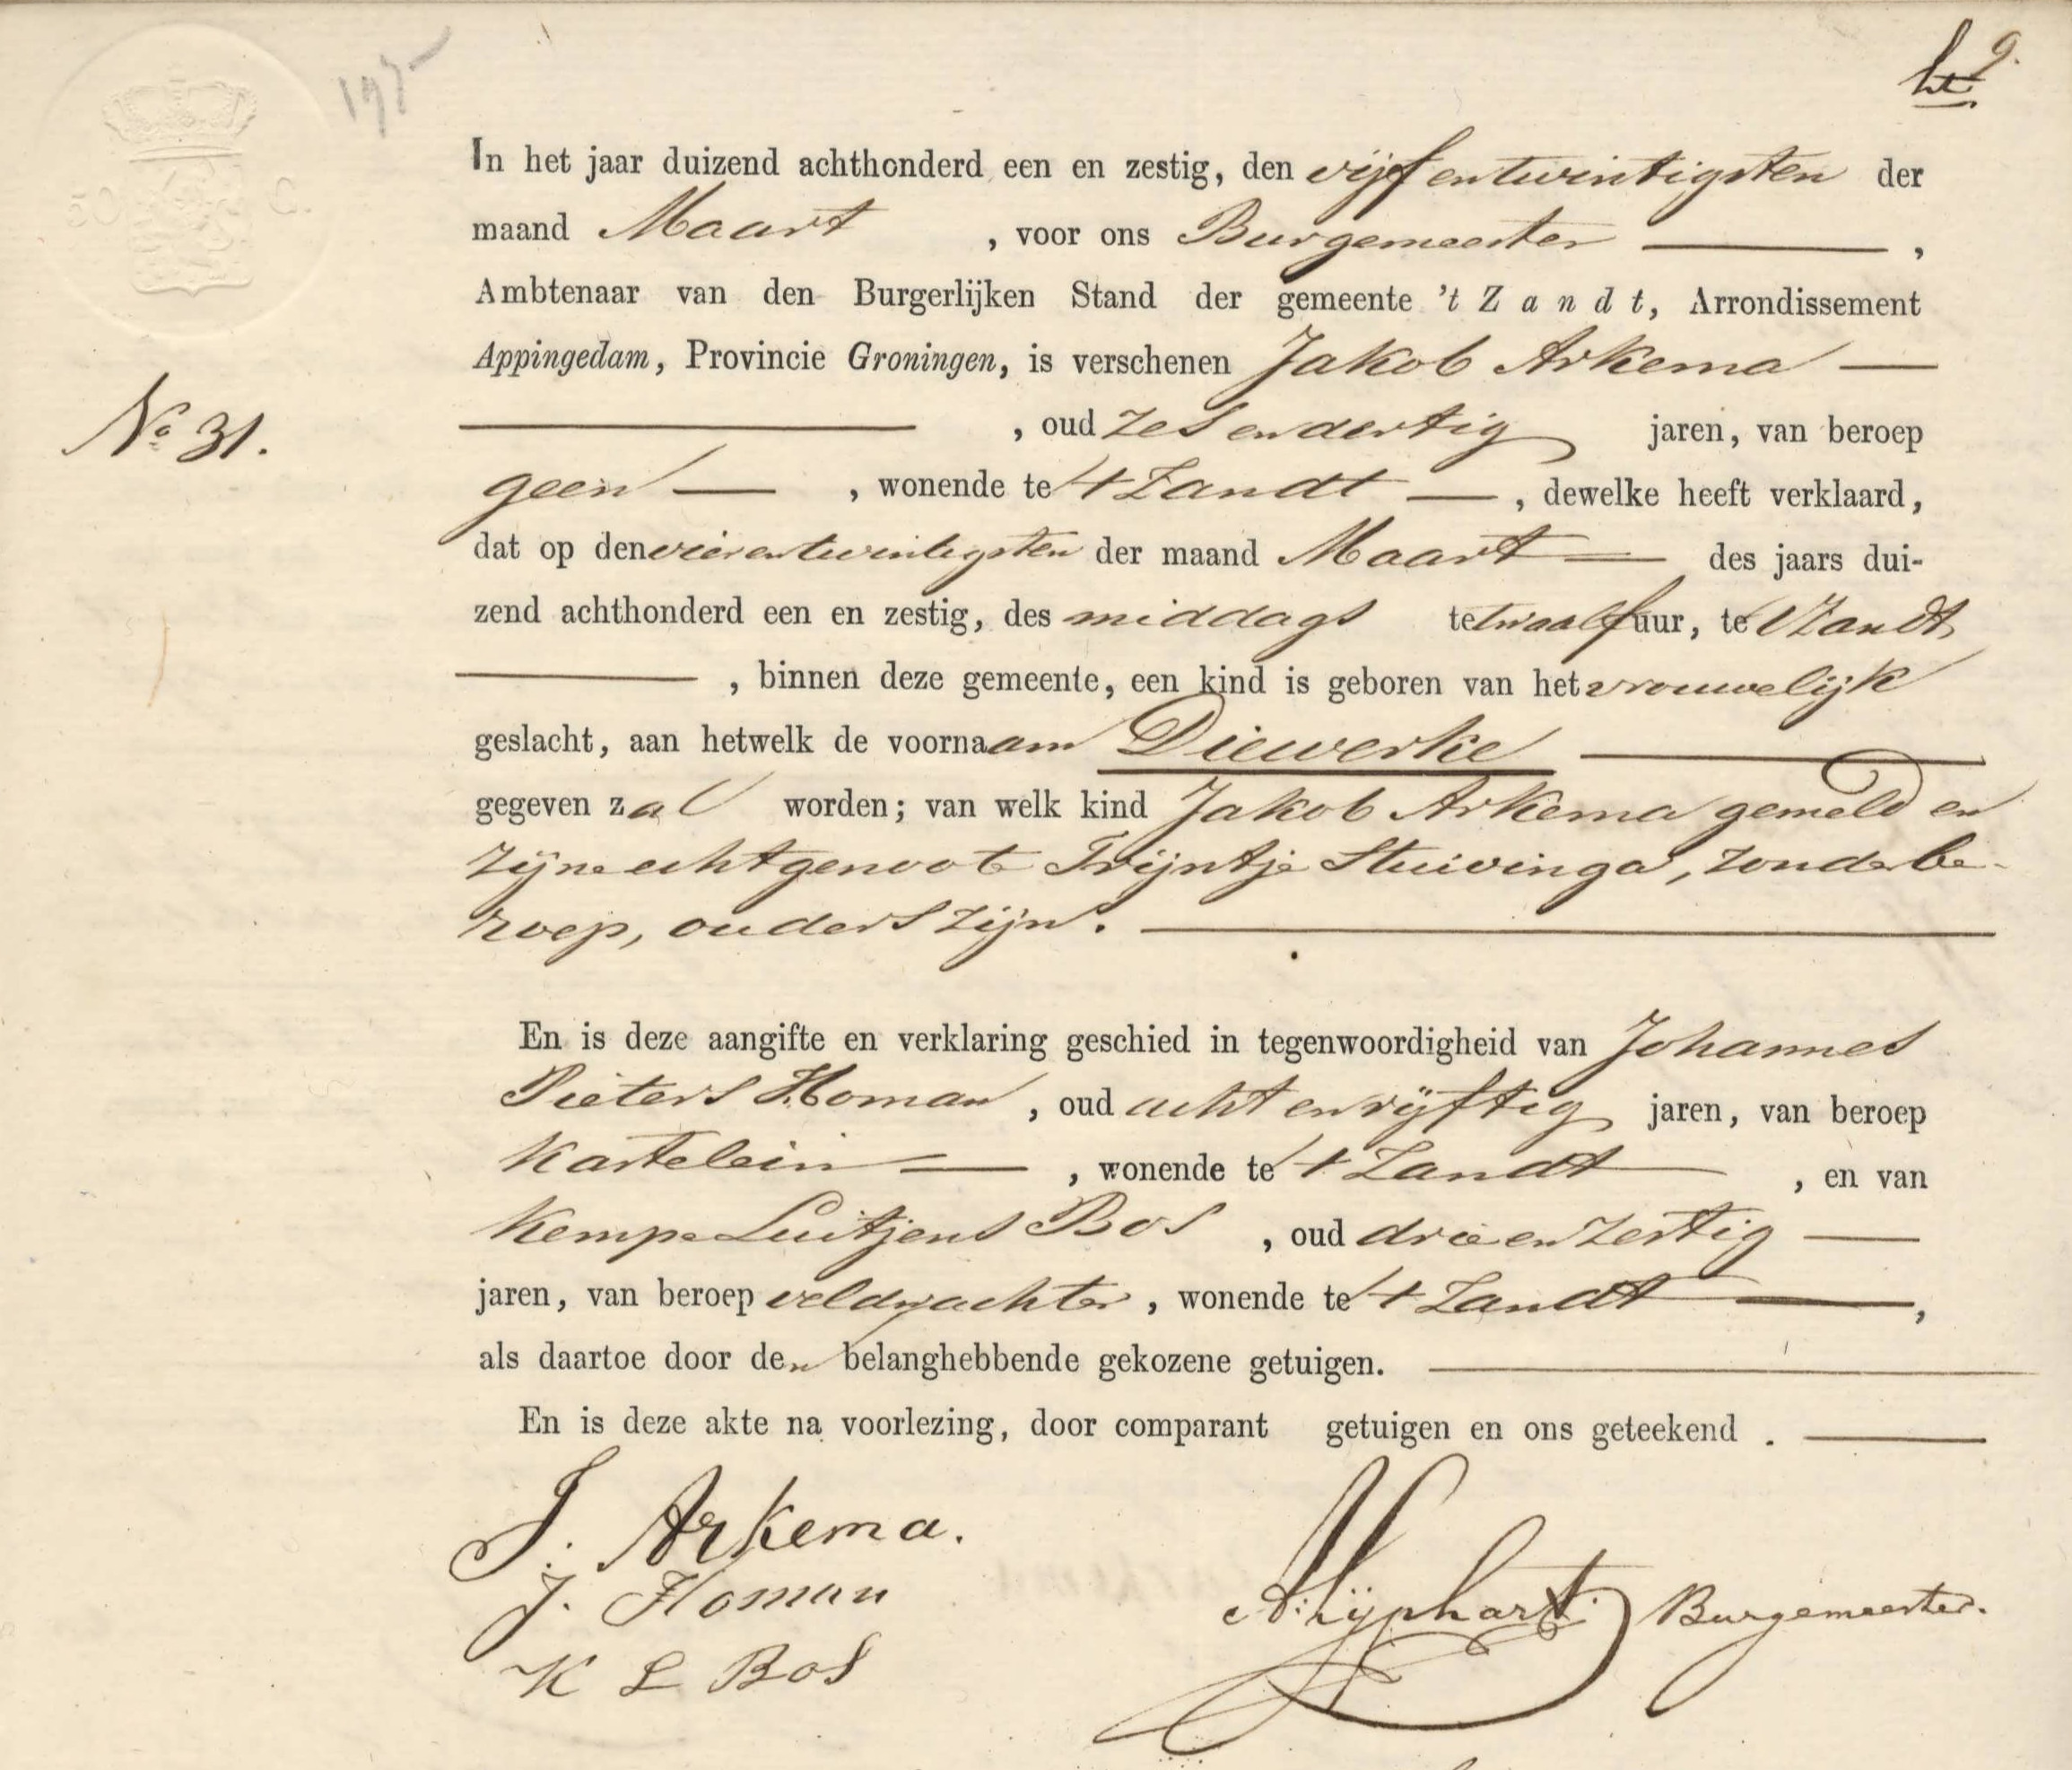 9.
197
50 C.
In het jaar duizend achthonderd een en zestig, den vijfentwintigsten der
maand Maart , voor ons Burgemeester ,
Ambtenaar van den Burgerlijken Stand der gemeente 't Zandt, Arrondissement
Appingedam, Provincie Groningen, is verschenen Jakob Arkema
No 31.
, oud zesendertig jaren, van beroep
geen , wonende te 't Zandt , dewelke heeft verklaard,
dat op den vierentwintigsten der maand Maart des jaars dui-
zend achthonderd een en zestig, des middags te twaalf uur, te 't Zandt
, binnen deze gemeente, een kind is geboren van het vrouwelijk
geslacht, aan hetwelk de voornaam Diewerke
gegeven zal worden; van welk kind Jakob Arkema gemeld en
zijne echtgenoot Trijntje Stuivinga, zonder be-
roep, ouders zijn.
En is deze aangifte en verklaring geschied in tegenwoordigheid van Johannes
Pieters Homan , oud acht en vijftig jaren, van beroep
kastelein , wonende te 't Zandt , en van
Kempe Luitjens Bos , oud drie en zestig
jaren, van beroep veldwachter , wonende te 't Zandt ,
als daartoe door den belanghebbende gekozene getuigen.
En is deze akte na voorlezing, door comparant getuigen en ons geteekend .
J. Arkema.
J. Homan
K L Bos
Burgemeester.